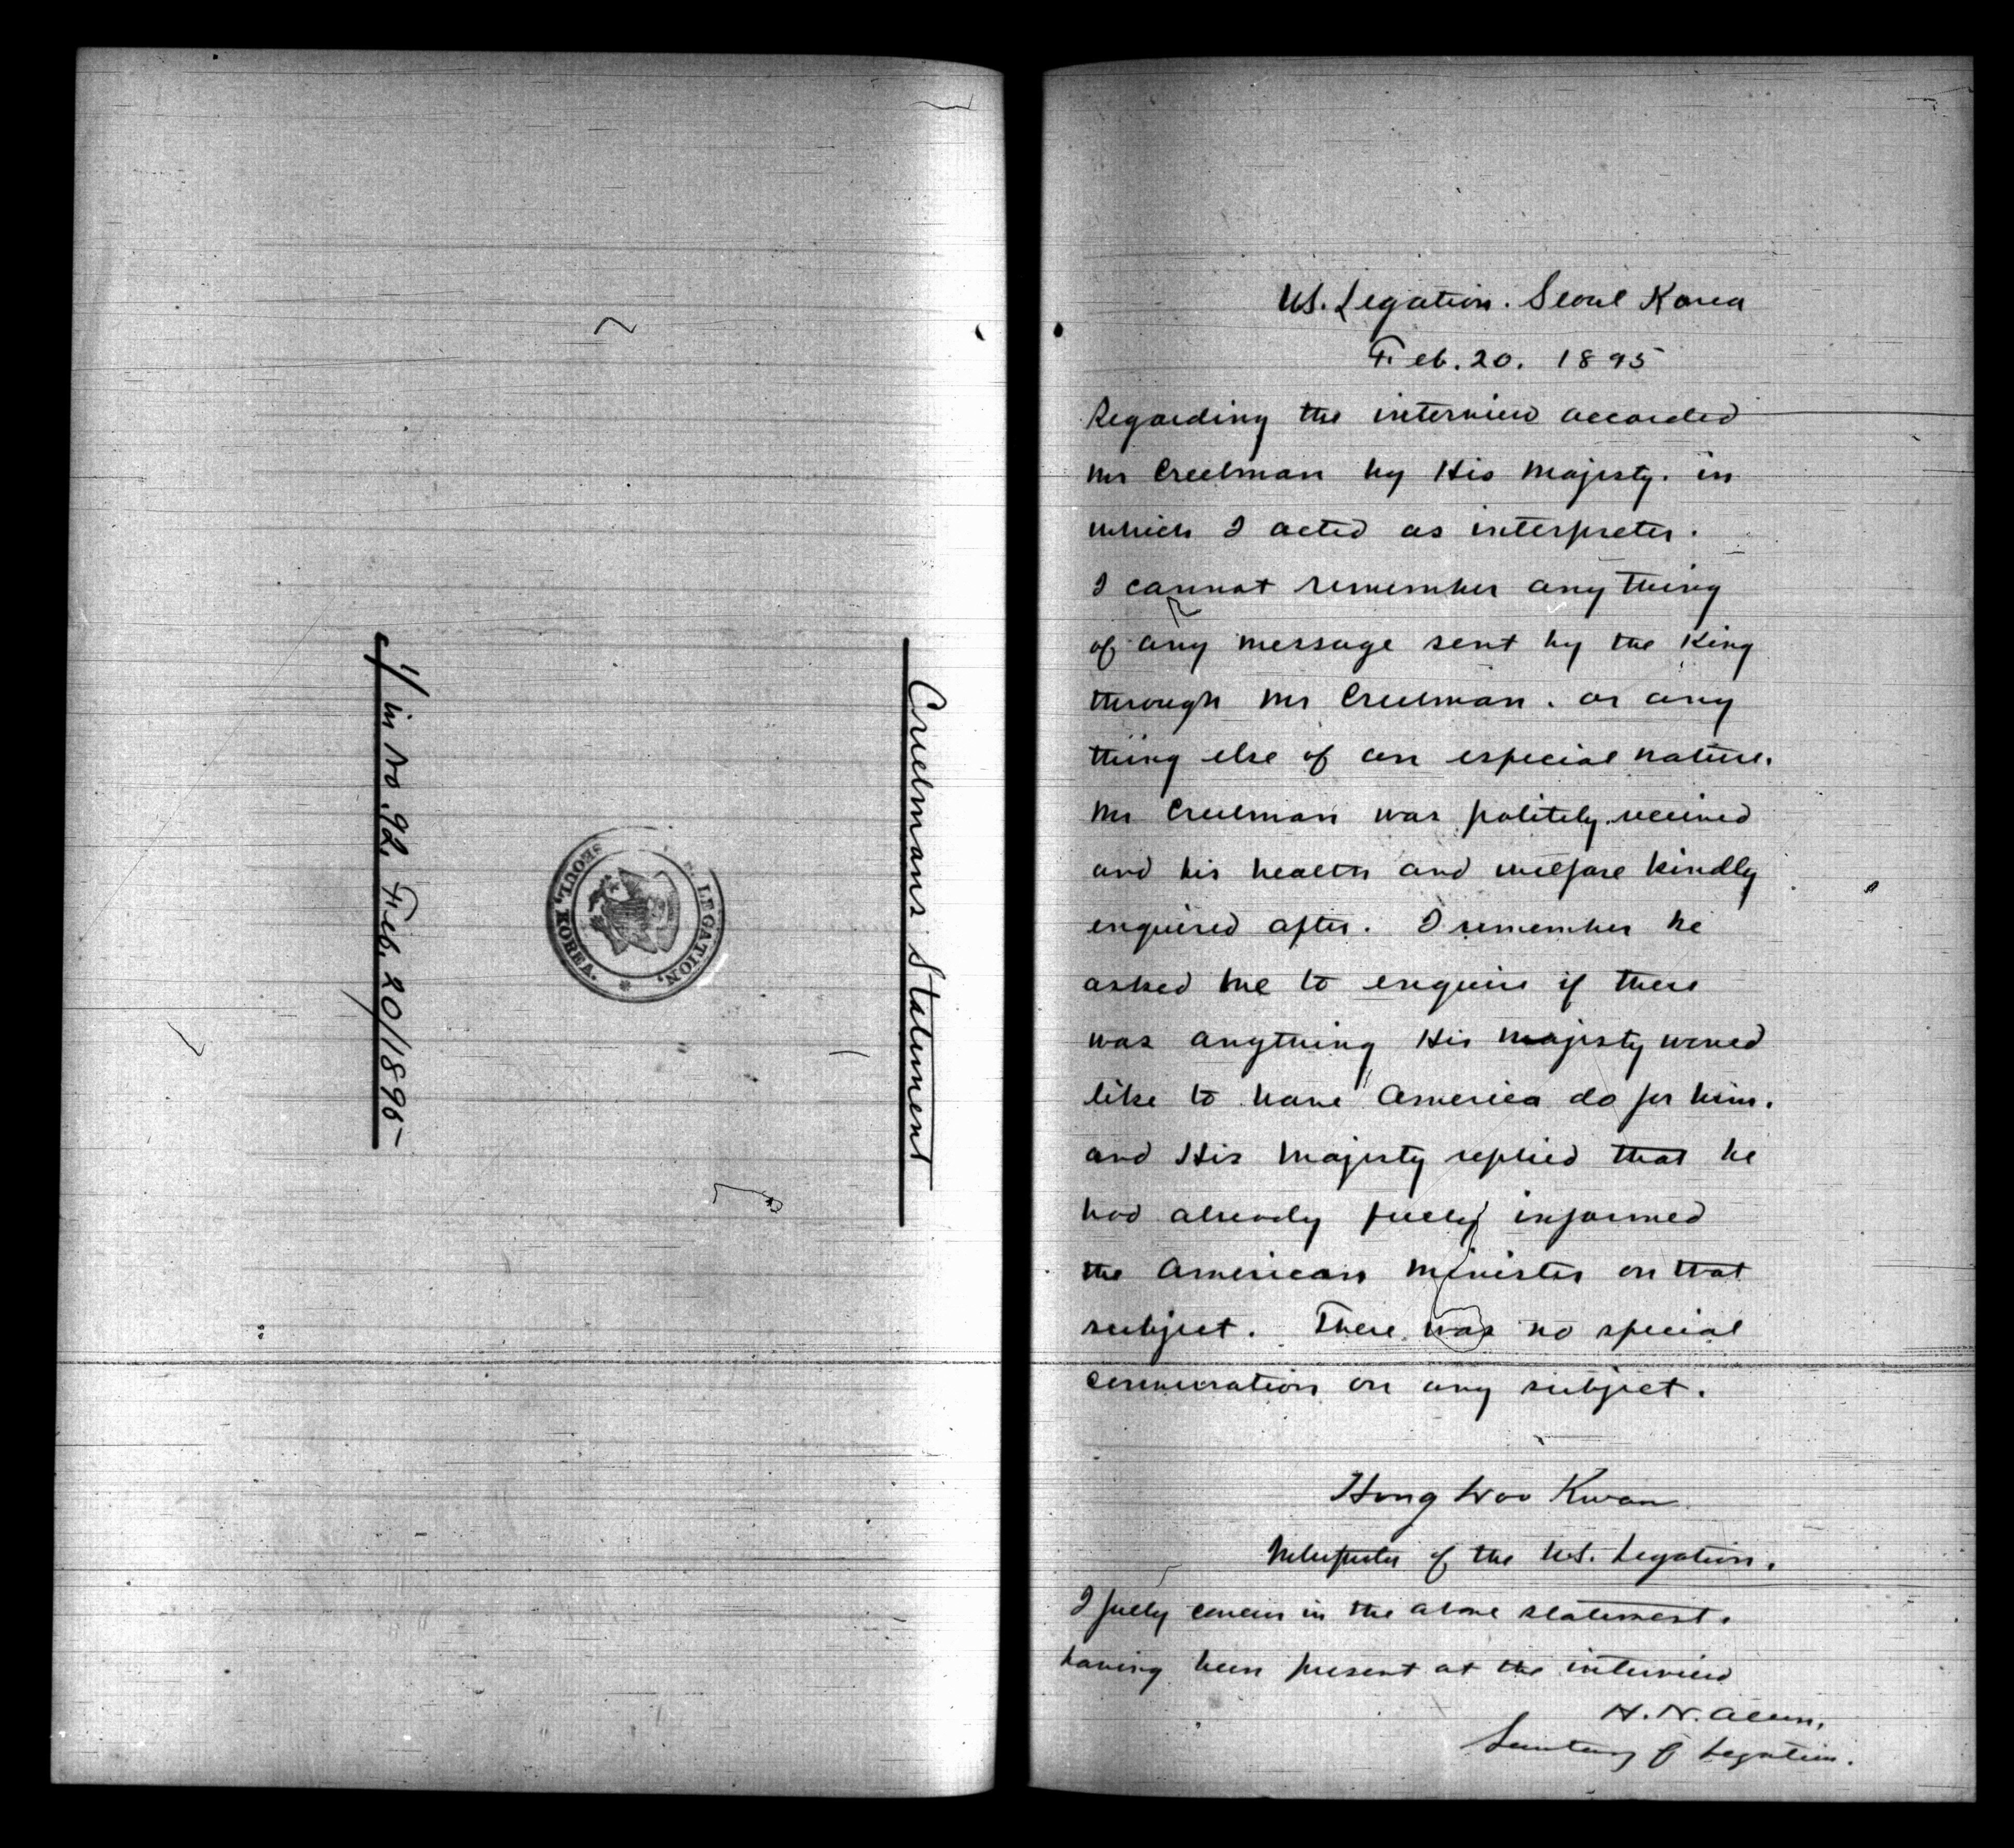 Creelmans Statement
LEGATION,
SEOUL, KOREA.
1/ in No. 92, Feb. 20/1895
US. Legation. Seoul Korea
Feb. 20. 1895
Regarding the interview accorded
Mr Creelman by His Majesty. in
which I acted as interpreter.
I cannot remember any thing
of any message sent by the King
through Mr Creelman. or any
thing else of an especial nature.
Mr Creelman was politely received
and his health and welfare kindly
enquired after. I remember he
asked me to enquire if there
was anything His Majesty would
like to have America do for him.
and His Majesty replied that he
had already fully informed
the American Minister on that
subject. There was no special
conversation on any subject.
Hong Woo Kwan
Interpreter of the U.S. Legation.
I fully concur in the above statement.
having been present at the interview
H. N. Allen,
Secretary of Legation.